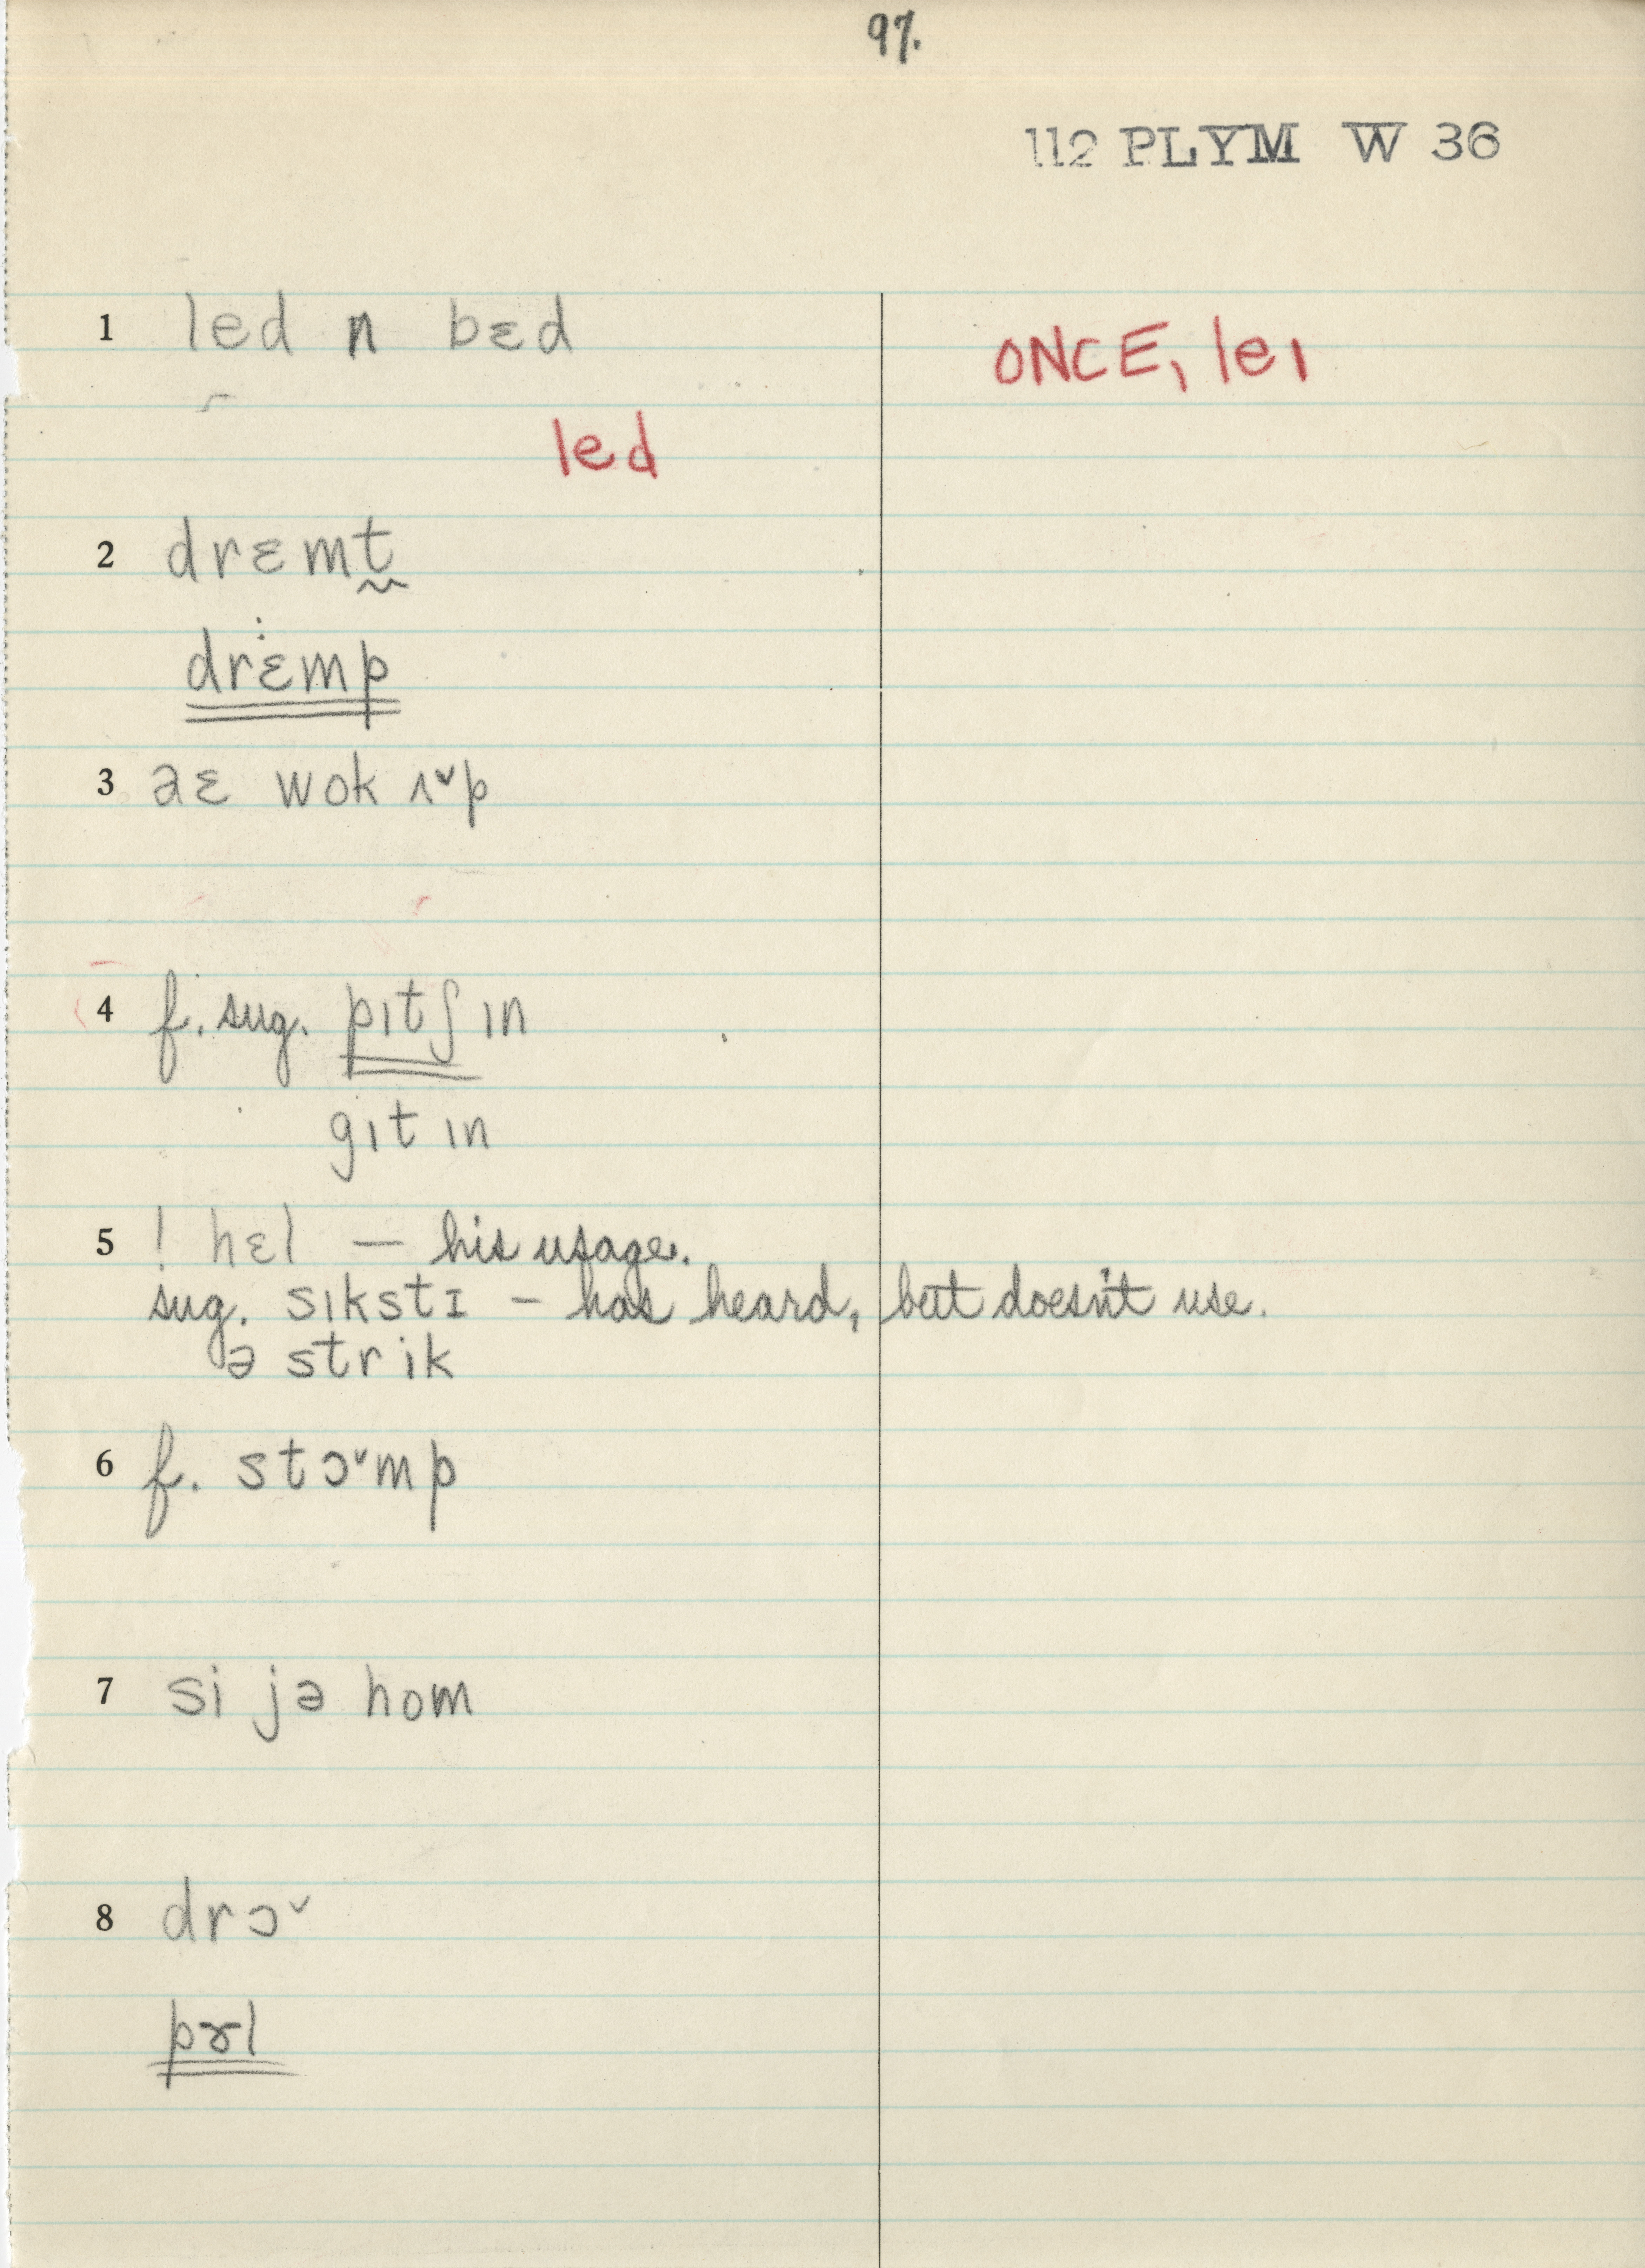 97.
112 PLYM W 36
1 led n bɛd
ONCE, leɪ
led
2 drɛmt̰
drɛmp
3 aɛ wok ʌˇp
4 f. sug. pɪtʃ ɪn
gɪt ɪn
5 ! hɛl — his usage.
sug. sɪkstɪ – has heard, but doesn't use.
ə strik
6 f. stɔˇmp
7 si jə hom
8 drɔˇ
pɚl